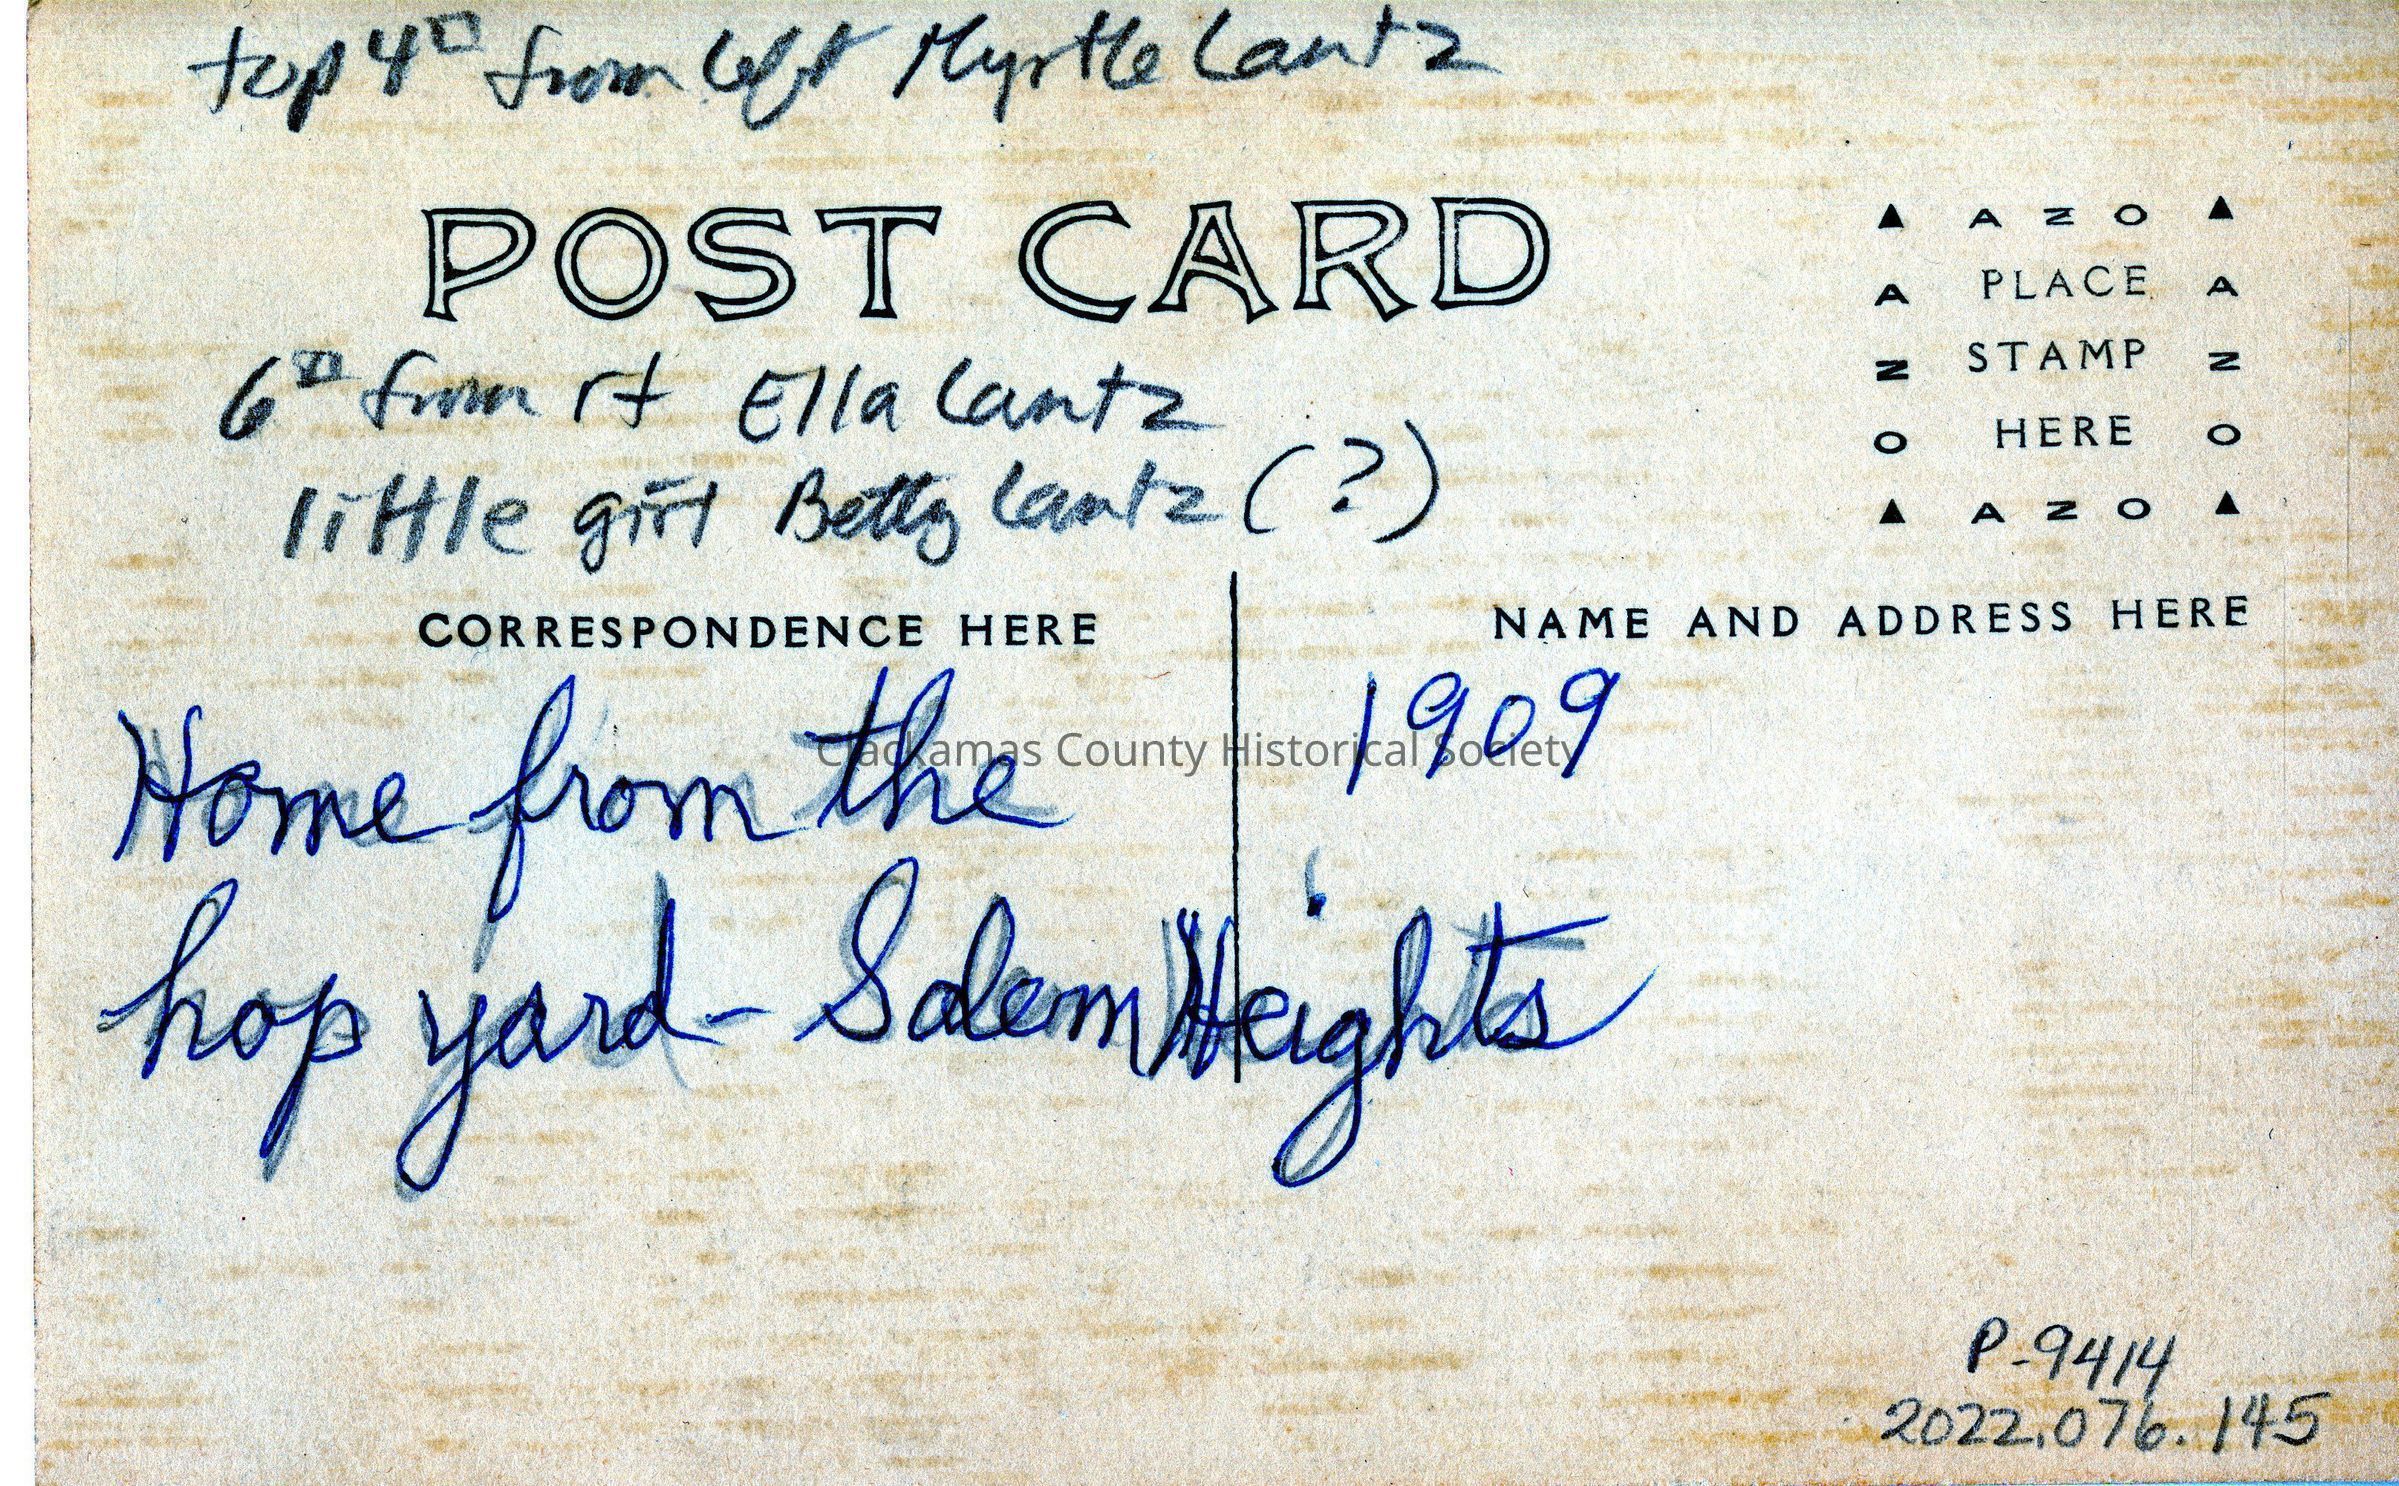 top 4th from left Myrtle Lantz
POST CARD
▲ AZO ▲
A PLACE A
Z STAMP Z
O HERE O
▲ AZO ▲
6th from rt Ella Lantz
little girl Betty Lantz (?)
CORRESPONDENCE HERE
NAME AND ADDRESS HERE
Home from the
1909
Clackamas County Historical Society
hop yard - Salem Heights
P-9414
2022.076.145